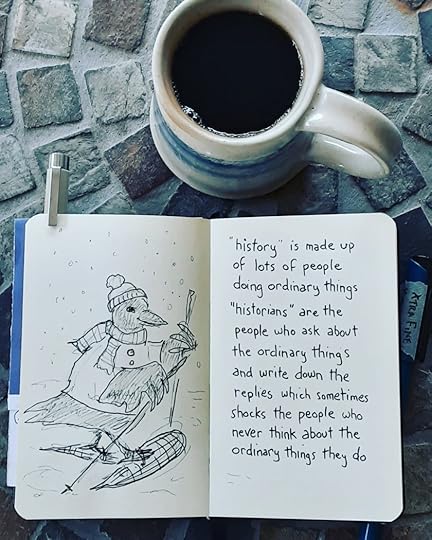 "history" is made up
of lots of people
doing ordinary things
"historians" are the
people who ask about
the ordinary things
and write down the
replies which sometimes
shocks the people who
never think about the
ordinary things they do
XTRA FINE